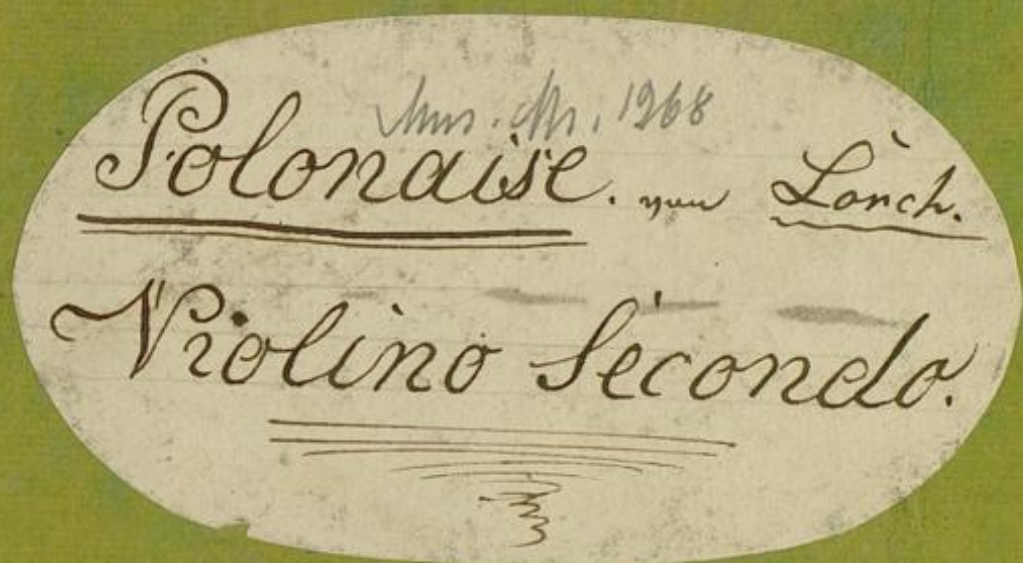 Mus. Ms. 1968
Polonaise. von Lorch.
Violino Secondo.